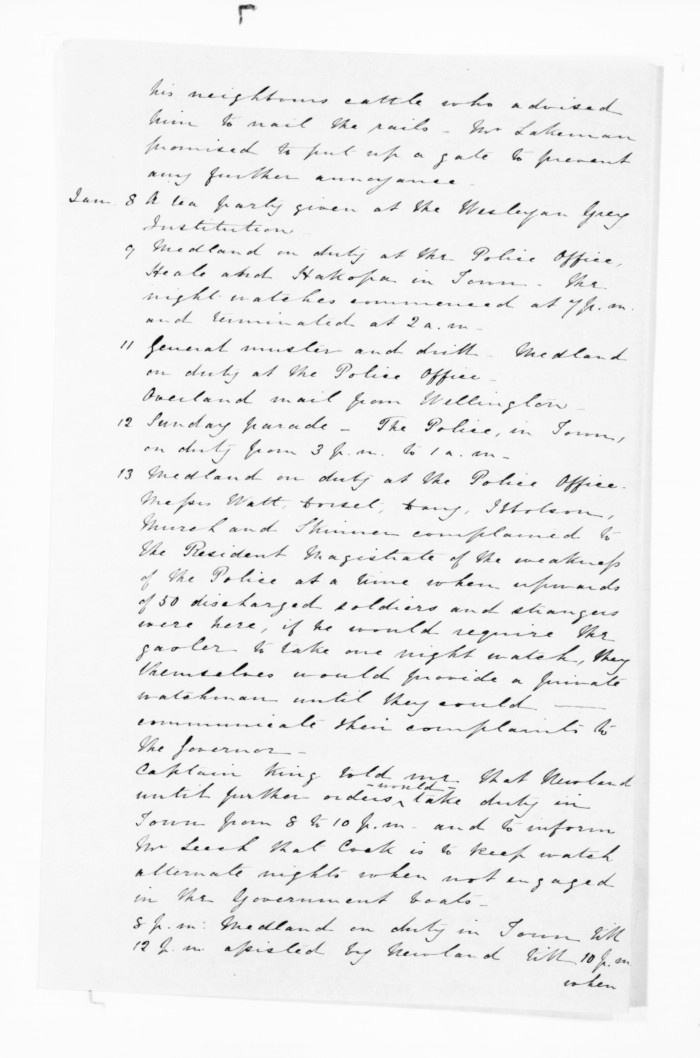 his neighbours cattle who advised
him to nail the rails - Mr Lakeman
promised to put up a gate to prevent
any further annoyance.
Jan. 8 A tea party given at the Wesleyan Grey
Institution
9 Medland on duty at the Police Office,
Heale and Hakopa in Town - The
night watches commenced at 7 p.m.
and terminated at 2 a.m -
11 General muster and drill - Medland
on duty at the Police Office -
Overland mail from Wellington -
12 Sunday parade - The Police, in Town,
on duty from 3 p.m. to 1 a.m -
13 Medland on duty at the Police Office -
Messrs Watt, Dorset, Davy, Ibbotson,
Murch and Skinner complained to
the Resident Magistrate of the weakness
of the Police at a time when upwards
of 50 discharged soldiers and strangers
were here, if he would require the
gaoler to take one night watch, they
themselves would provide a private
watchman until they could —
communicate their complaints to
the Governor -
Captain King told me that Newland
until further orders, would take duty in
Town from 8 to 10 p.m - and to inform
Mr Leech that Cock is to keep watch
alternate nights when not engaged
in the Government boats -
8 p.m: Medland on duty in Town till
12 p.m. assisted by Newland till 10 p.m
when